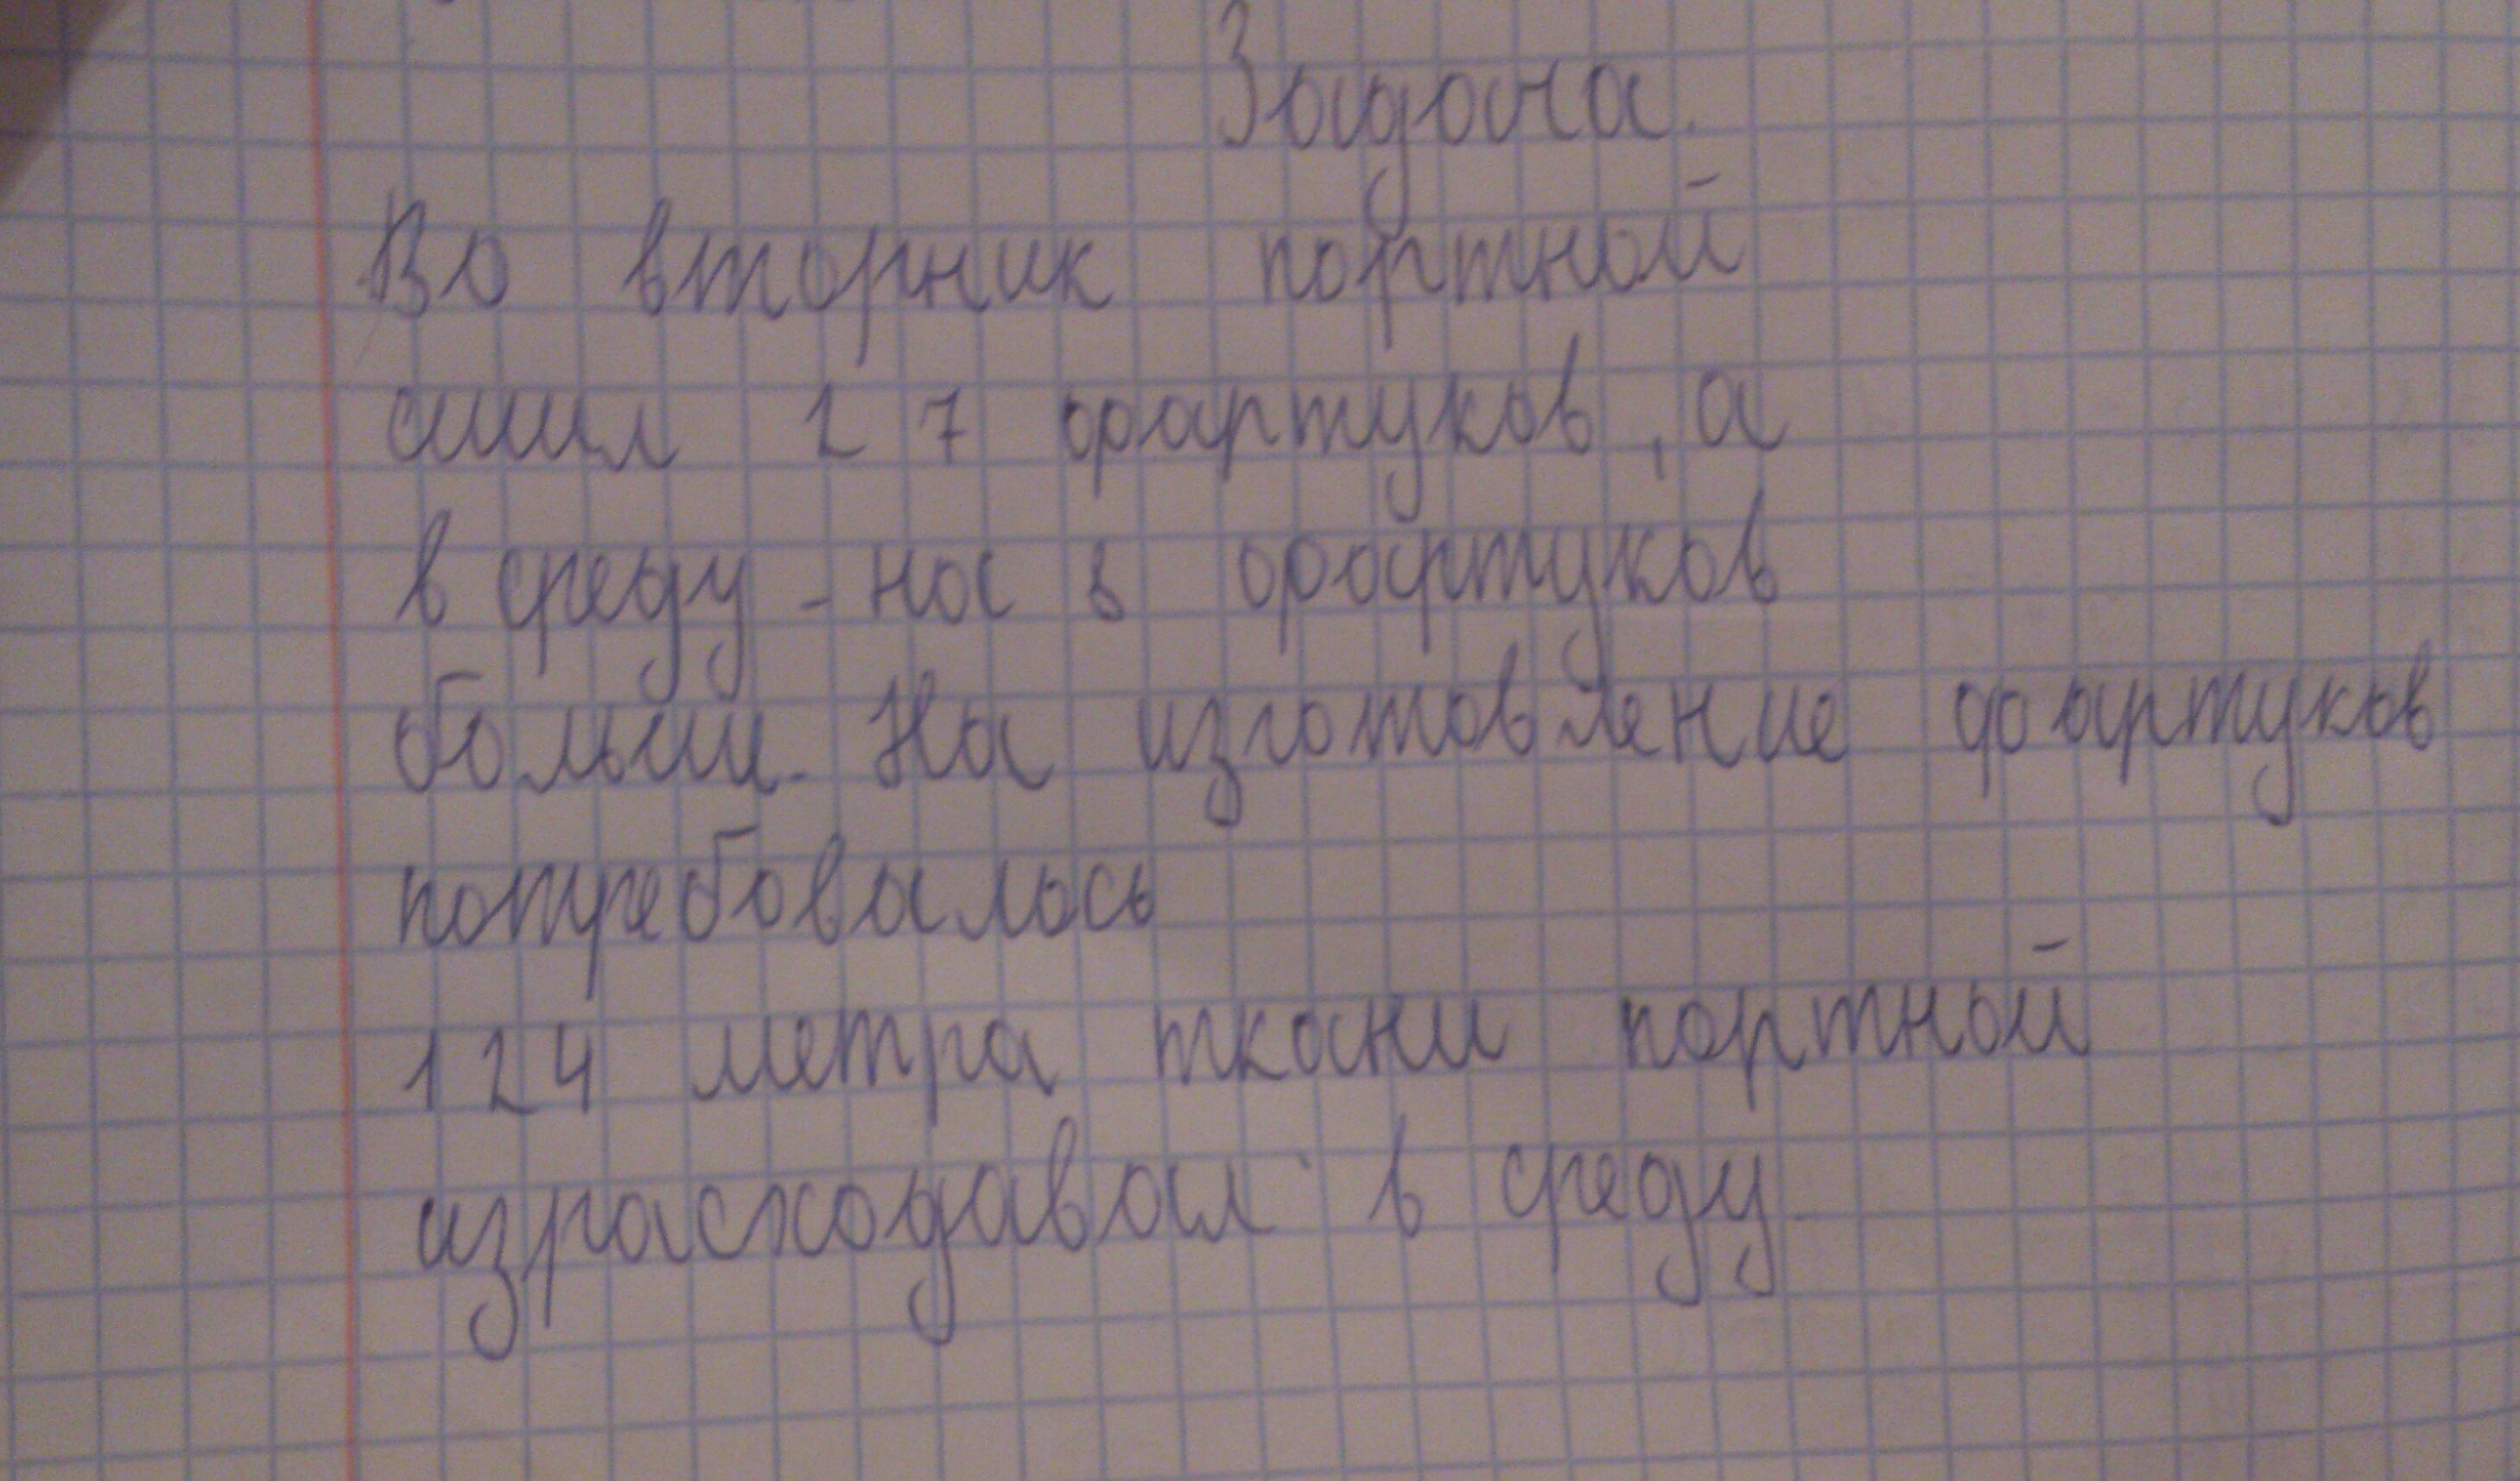 Задача.
Во вторник портной
сшил 27 фартуков, а
в среду - на 8 фартуков
больше. На изготовление фартуков
потребовалось
124 метра ткани портной
израсходавал в среду